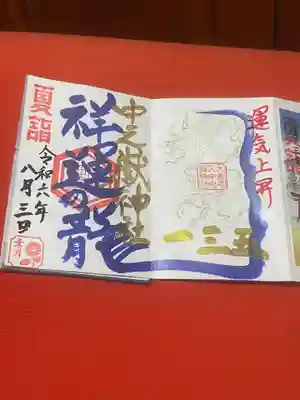 運気上昇
一三五
中之嶽神社
祥運の龍
夏詣
令和六年
八月三日